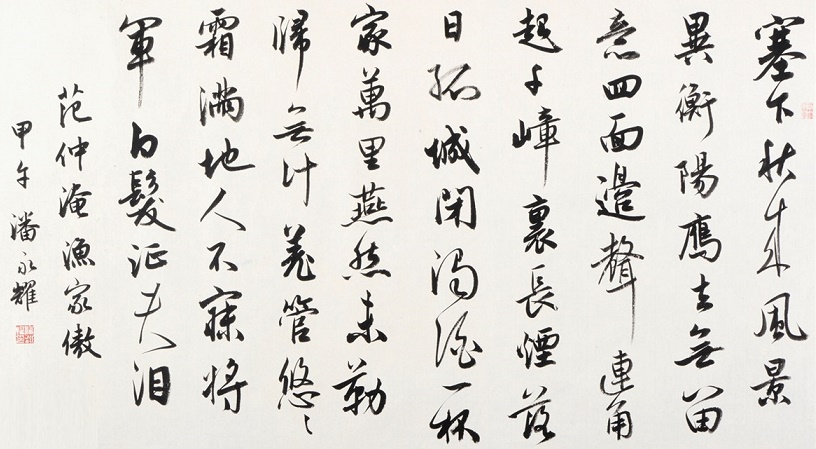 塞下秋来風景
異衡陽鷹去無留
意四面邊聲連角
起千嶂裏長煙落
日孤城閉濁酒一杯
家萬里燕然未勒
歸無計羌管悠〻
霜滿地人不寐將
軍白髮征夫泪
范仲淹漁家傲
甲午潘永耀